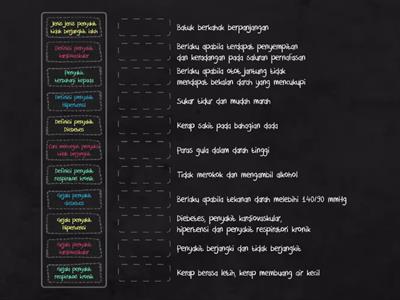 Jenis jenis penyakit
tidak berjangkit ialah
Batuk berkahak berpanjangan
Definisi penyakit
kardiovaskular
Berlaku apabila terdapat penyempitan
dan keradangan pada saluran pernafasan
Penyakit
terbahagi kepada
Berlaku apabila otot jantung tidak
mendapat bekalan darah yang mencukupi
Definisi penyakit
Hipertensi
Sukar tidur dan mudah marah
Definisi penyakit
Diebetes
Kerap sakit pada bahagian dada
Cara mencegah penyakit
tidak berjangkit
Paras gula dalam darah tinggi
Definisi penyakit
respiratori kronik
Tidak merokok dan mengambil alkohol
Gejala penyakit
diebetes
Berlaku apabila tekanan darah melebihi 140/90 mmHg
Gejala penyakit
Hipertensi
Diebetes, penyakit kardiovaskular,
hipertensi dan penyakit respiratori kronik
Gejala penyakit
kardiovaskular
Penyakit berjangki dan tidak berjangkit
Gejala penyakit
respiratori kronik
Kerap berasa letih, kerap membuang air kecil